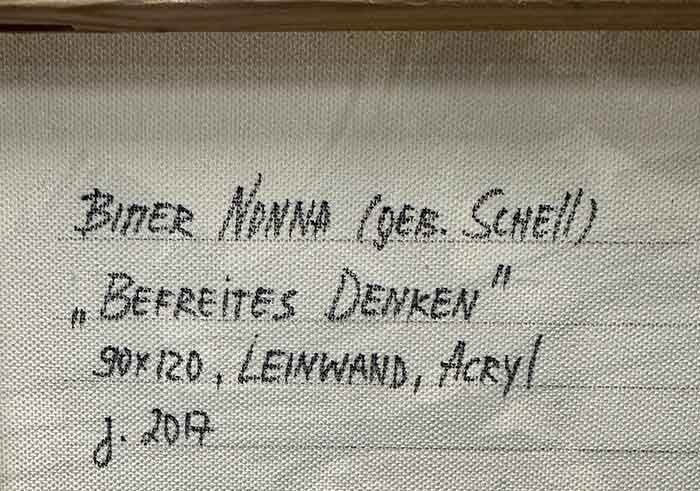 BITTER NONNA (GEB. SCHEll)
„BEFREITES DENKEN"
90x120, LEINWAND, ACRYl
J. 2017